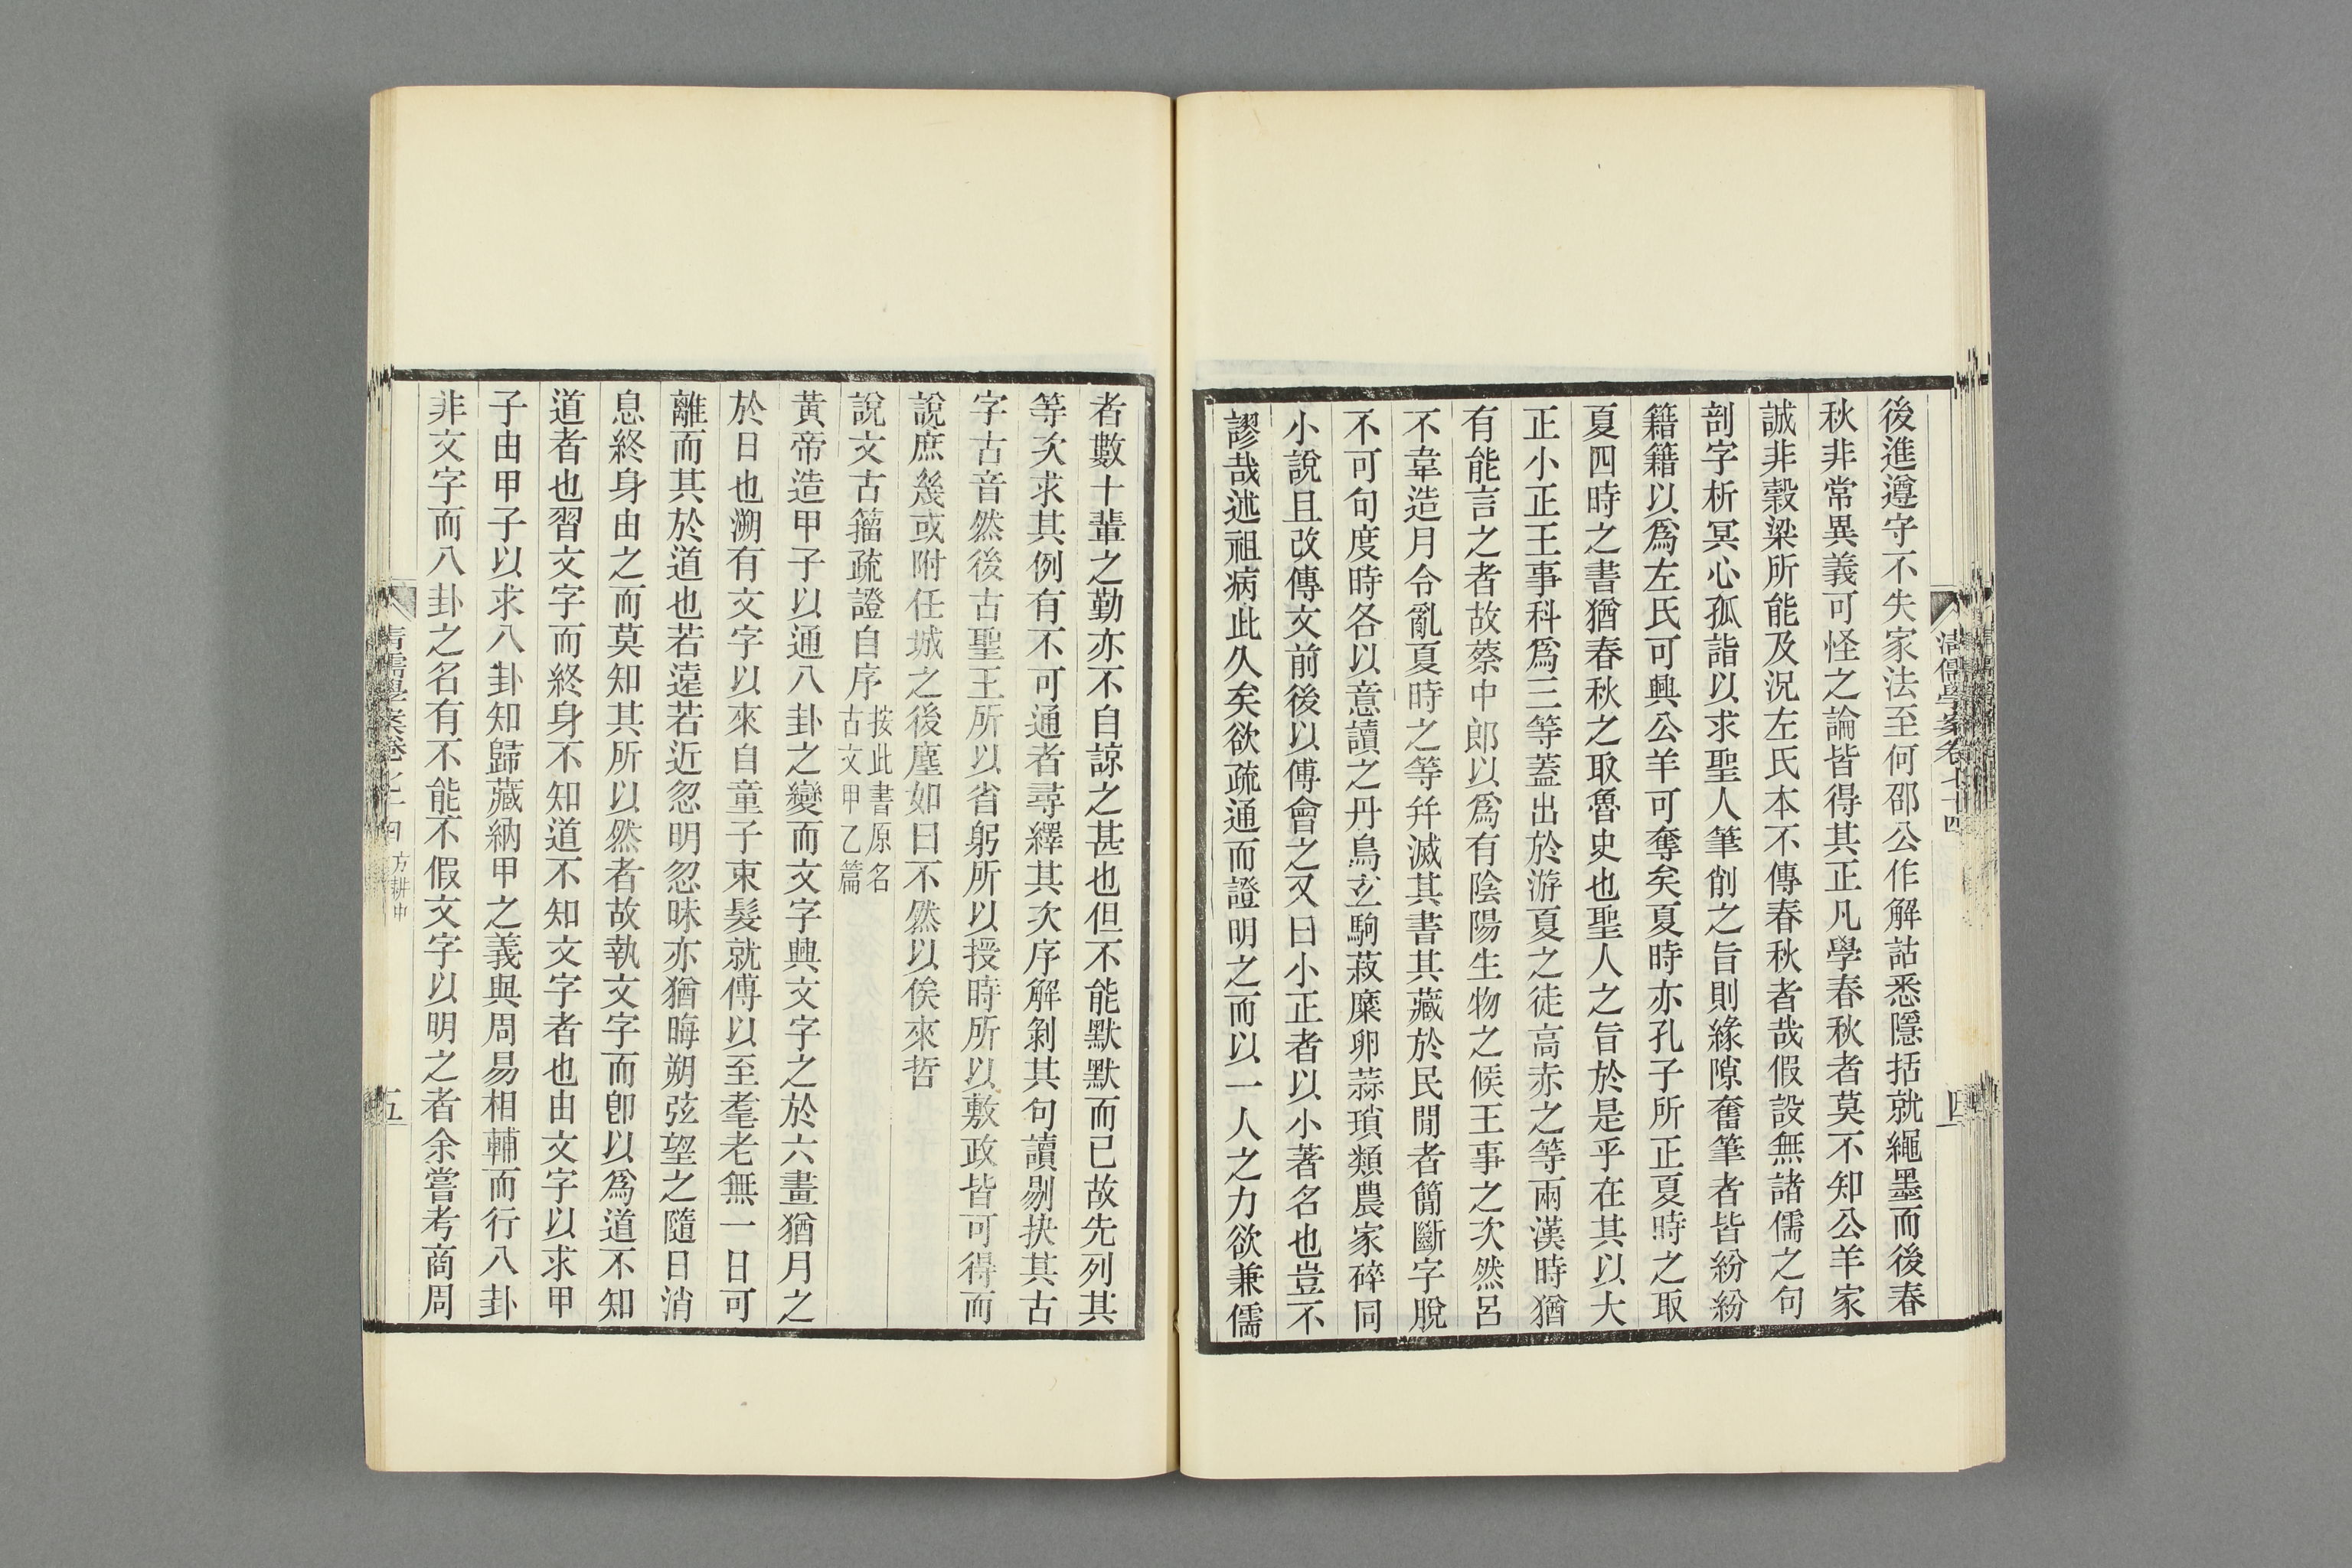 清儒學案卷七十四
四
後進遵守不失家法至何邵公作解詁悉隱括就繩墨而後春
秋非常異義可怪之論皆得其正凡學春秋者莫不知公羊家
誠非穀梁所能及況左氏本不傳春秋者哉假設無諸儒之句
剖字析冥心孤詣以求聖人筆削之旨則緣隙奮筆者皆紛紛
籍籍以爲左氏可興公羊可奪矣夏時亦孔子所正夏時之取
夏四時之書猶春秋之取魯史也聖人之旨於是乎在其以大
正小正王事科爲三等蓋出於游夏之徒高赤之等兩漢時猶
有能言之者故蔡中郎以爲有陰陽生物之候王事之次然呂
不韋造月令亂夏時之等幷滅其書其藏於民閒者簡斷字脫
不可句度時各以意讀之丹鳥玄駒菽糜卵蒜瑣類農家碎同
小說且改傳文前後以傅會之又曰小正者以小著名也豈不
謬哉述祖病此久矣欲疏通而證明之而以一人之力欲兼儒
者數十輩之勤亦不自諒之甚也但不能默默而已故先列其
等次求其例有不可通者尋繹其次序解剝其句讀剔抉其古
字古音然後古聖王所以省躬所以授時所以敷政皆可得而
說庶幾或附任城之後塵如曰不然以俟來哲
說文古籀疏證自序按此書原名
古文甲乙篇
黃帝造甲子以通八卦之變而文字興文字之於六畫猶月之
於日也溯有文字以來自童子束髮就傅以至耄老無一日可
離而其於道也若遠若近忽明忽昧亦猶晦朔弦望之隨日消
息終身由之而莫知其所以然者故執文字而卽以爲道不知
道者也習文字而終身不知道不知文字者也由文字以求甲
子由甲子以求八卦知歸藏納甲之義與周易相輔而行八卦
非文字而八卦之名有不能不假文字以明之者余嘗考商周
清儒學案卷七十四
方耕中
五